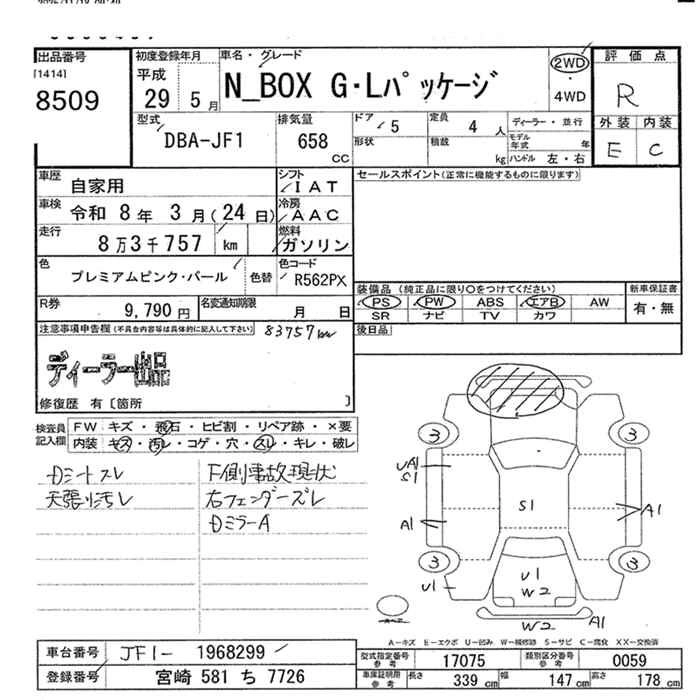 出品番号
[1414]
8509
初度登録年月
平成
29 5月
車名・グレード
N_BOX G・Lパッケージ
2WD
4WD
評価点
R
外装 内装
E C
型式
DBA-JF1
排気量
658
CC
ドア 5
形状
定員 4 人
積載 kg
ディーラー・並行
モデル年式 年
ハンドル 左・右
車歴 自家用
シフト IAT
車検 令和 8年 3月(24日)
冷房 AAC
走行 8万3千757 km
燃料 ガソリン
色 プレミアムピンク・パール 色替
色コード R562PX
R券 9,790円
名変通知期限 月 日
セールスポイント(正常に機能するものに限ります)
装備品 (純正品に限り○をつけてください)
PS PW ABS エアB AW
SR ナビ TV カワ
新車保証書
有・無
後日品
注意事項申告欄(不具合内容等は具体的に記入して下さい)
83757km
ディーラー出品
修復歴 有〔箇所 〕
検査員記入欄
FW キズ・飛石・ヒビ割・リペア跡・×要
内装 キズ・汚レ・コゲ・穴・スレ・キレ・破レ
Dシートスレ
天張り汚レ
F側事故現状
右フェンダーズレ
DミラーA
3 3
UA1
S1
S1
A1
A1
3 3
U1
U1
W2
W2 A1
A-キズ E-エクボ U-凹み W-補修跡 S-サビ C-腐食 XX-交換済
車台番号 JF1- 1968299
登録番号 宮崎 581 ち 7726
型式指定番号 参考 17075
類別区分番号 参考 0059
車庫証明用 参考 長さ 339 cm 幅 147 cm 高さ 178 cm